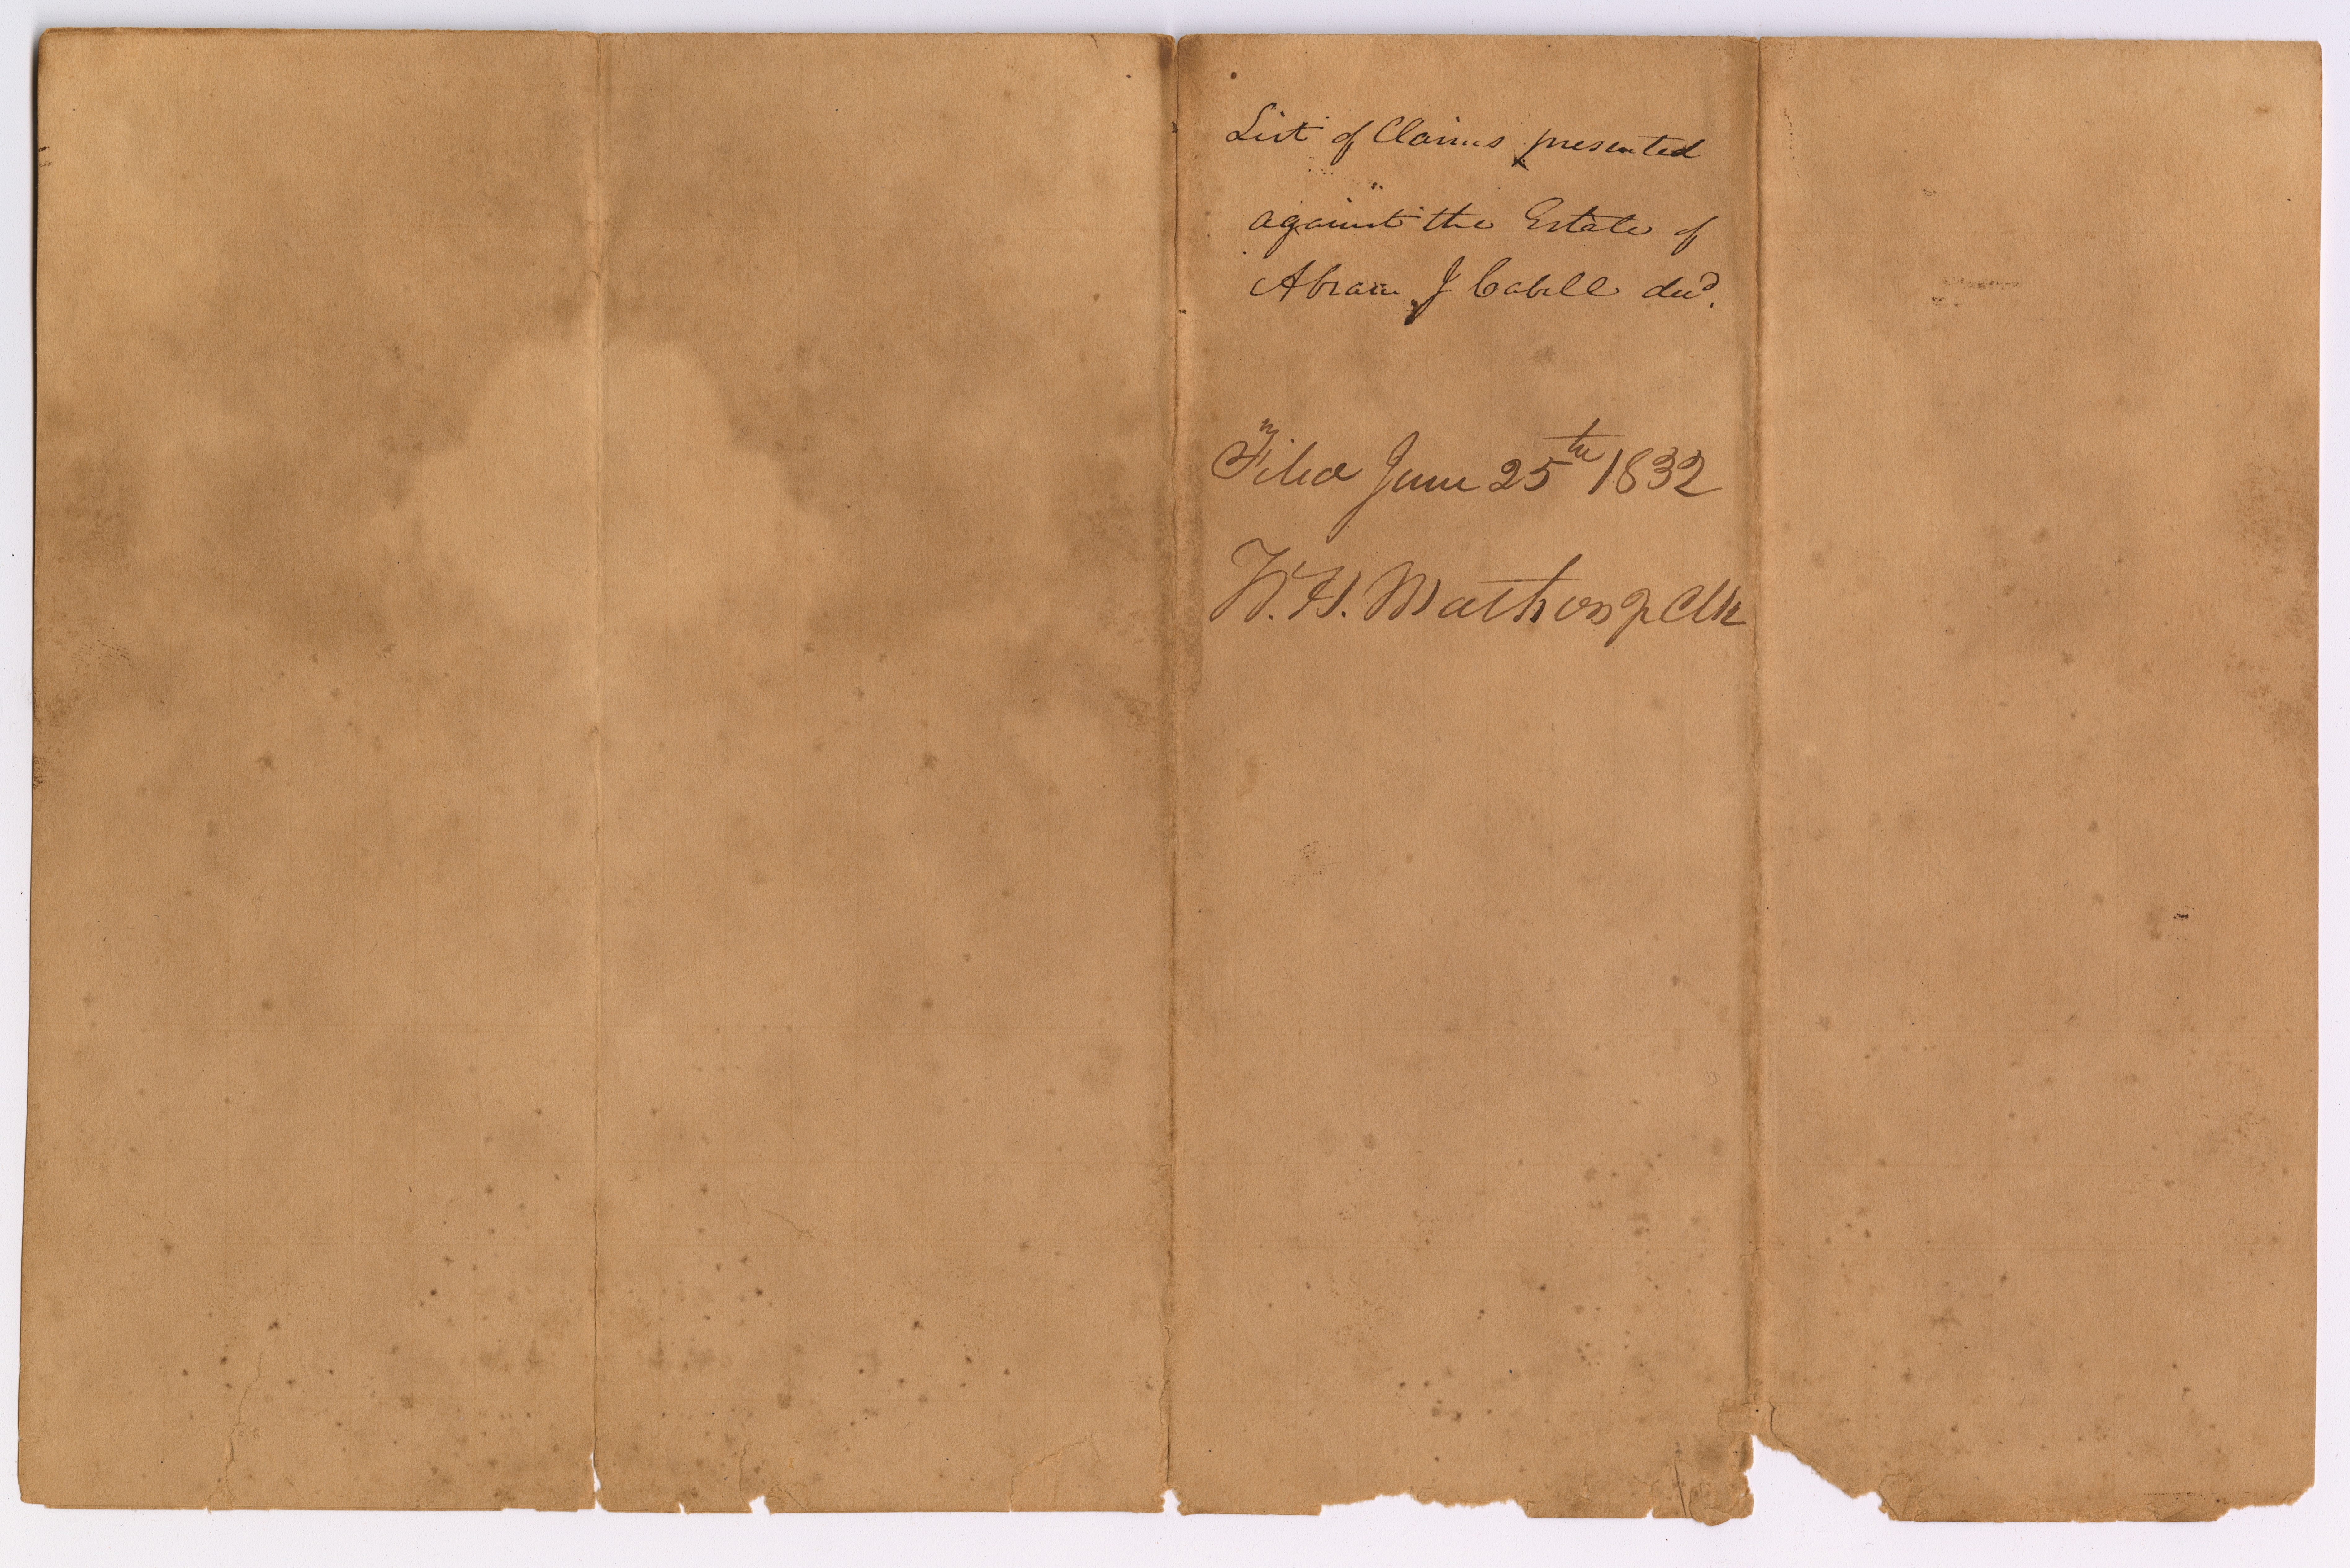 List of Claims presented
against the Estate of
Abram J Cabell decd.
Filed June 25th 1832
W. H. Mathers Clk